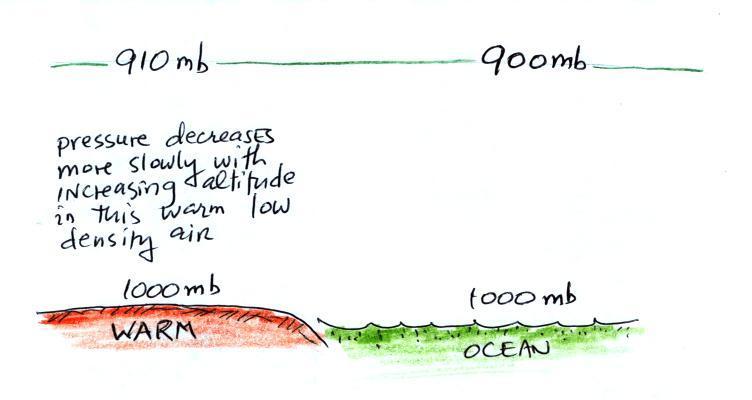 910 mb 900mb
pressure decreases
more slowly with
increasing altitude
in this warm low
density air
1000 mb 1000 mb
WARM
OCEAN